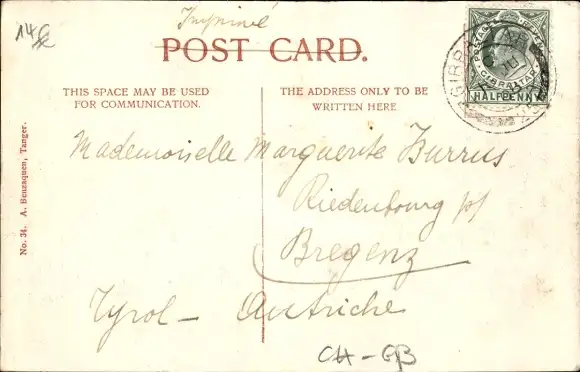 14€
Imprimé
POST CARD.
THIS SPACE MAY BE USED
FOR COMMUNICATION.
THE ADDRESS ONLY TO BE
WRITTEN HERE
POSTAGE
GIBRALTAR
HALFPENNY
GIBRALTAR
Mademoiselle Marguerite Burrus
Riedenbourg p/
Bregenz
Tyrol - Autriche
CH - GB
No. 34. A. Benzaquen, Tanger.